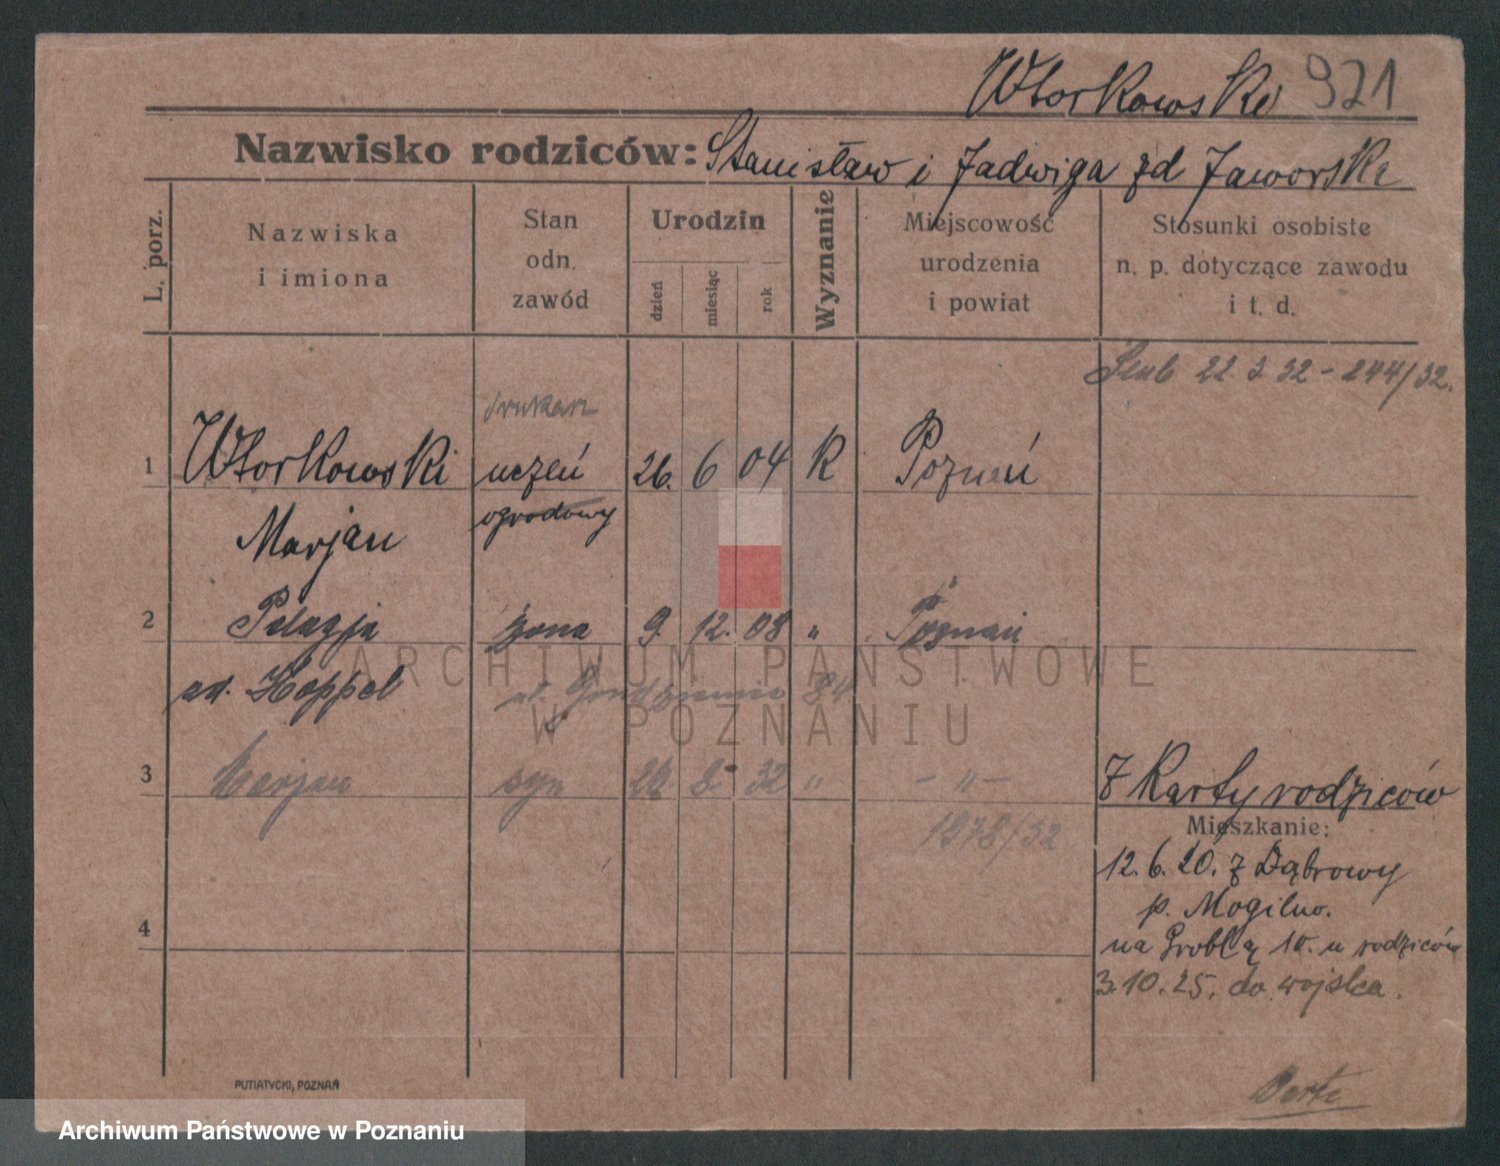 Wtorkowski 921
Nazwisko rodziców: Stanisław i Jadwiga zd Jaworska
L. porz.
Nazwiska
i imiona
Stan
odn.
zawód
Urodzin
dzień
miesiąc
rok
Wyznanie
Miejscowość
urodzenia
i powiat
Stosunki osobiste
n. p. dotyczące zawodu
i t. d.
Ślub 22 3 32 - 244/32.
drukarz
1 Wtorkowski uczeń 26. 6 04 R Poznań
Marjan ogrodowy
2 Pelagja żona 9. 12. 08 " Poznań
zd. Hoppel ul. 84
3 Marjan syn 26 8 32 " - " -
1978/32
4
Z Karty rodziców
Mieszkanie:
12. 6. 20. z Dąbrowy
p. Mogilno.
na Groblą 10. u rodziców
3. 10. 25. do wojska.
PUTIATYCKI, POZNAŃ
ARCHIWUM PAŃSTWOWE
W POZNANIU
Archiwum Państwowe w Poznaniu